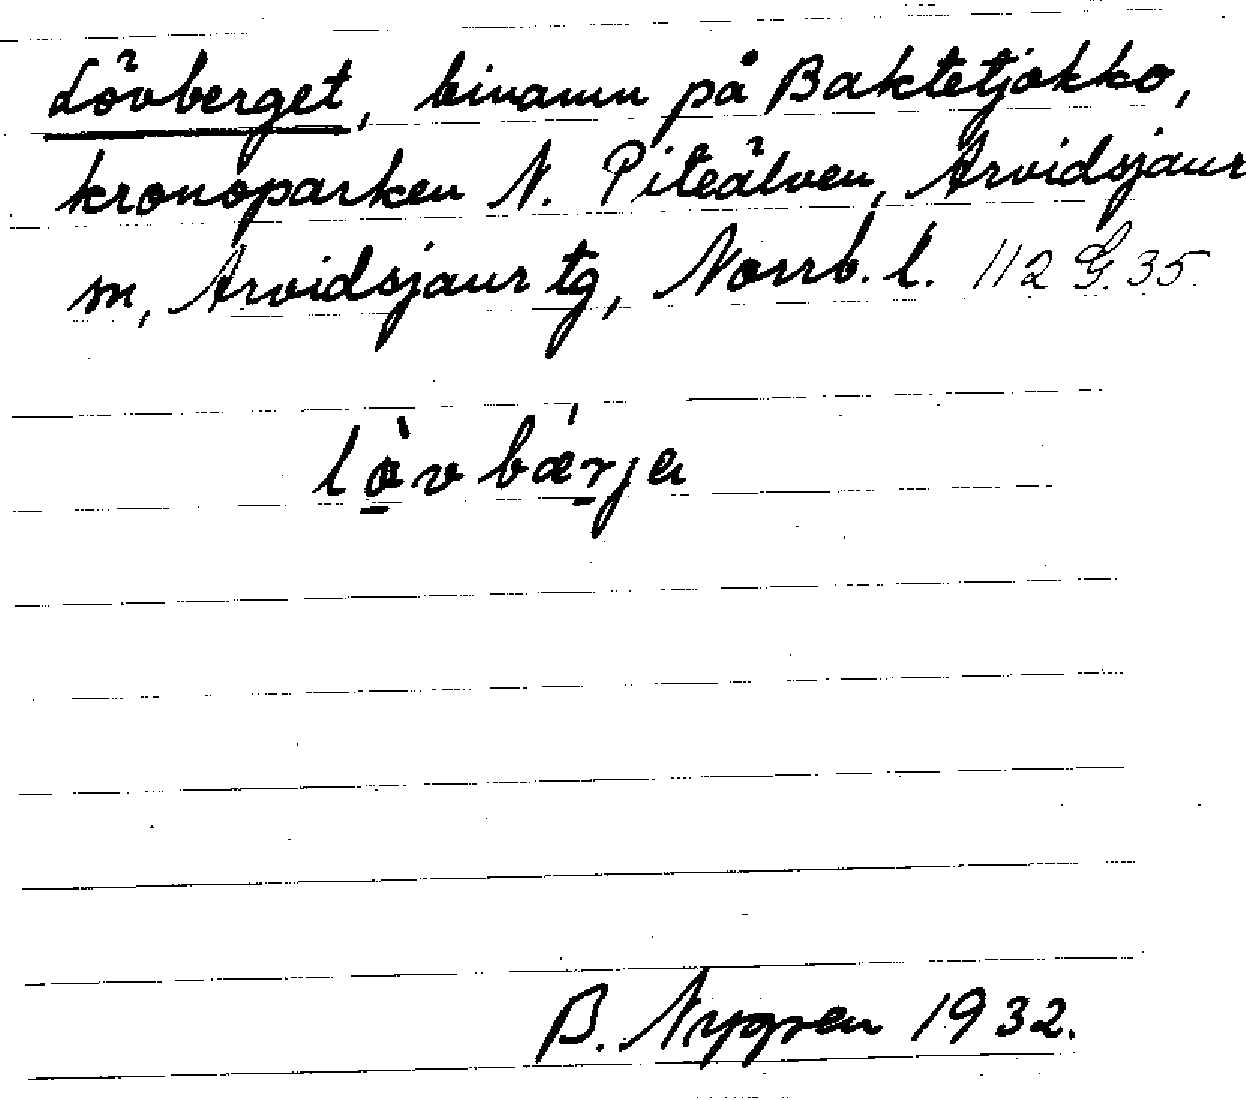 Lövberget, binamn på Baktetjåkko,
kronoparken N. Piteälven, Arvidsjaur
sn, Arvidsjaur tg, Norrb. l. 112 G. 35.
lòvbǽrja
B. Nygren 1932.